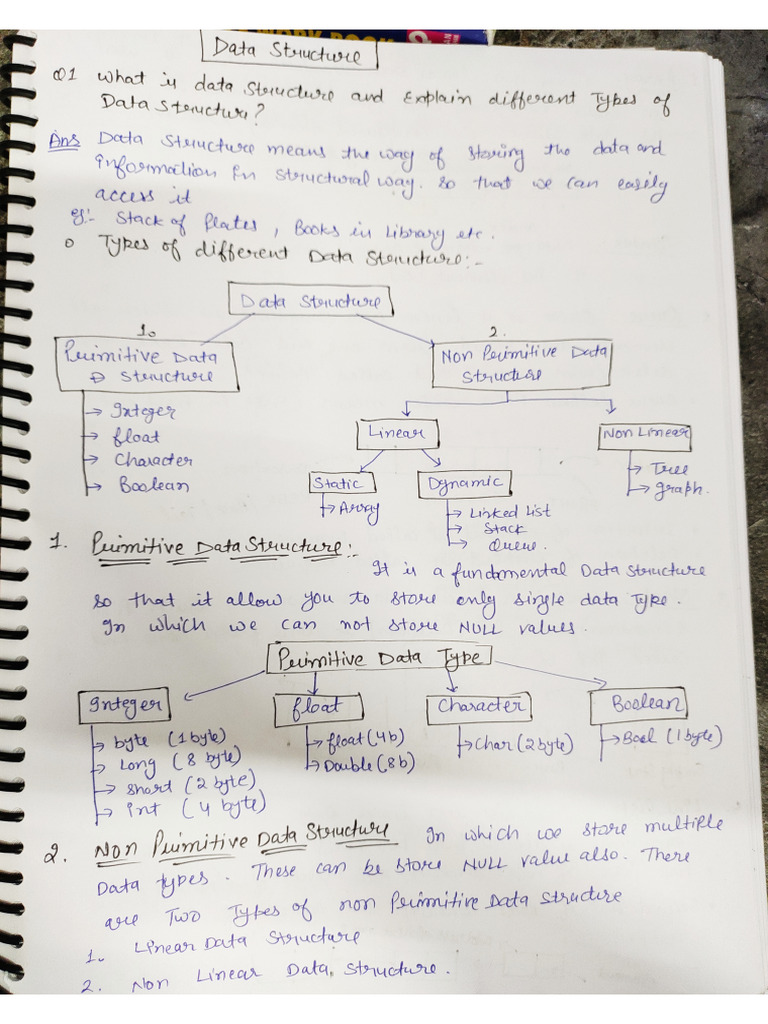 WORK BOOK
Data Structure
Q1 What is data structure and Explain different Types of
Data Structure?
Ans Data Structure means the way of storing the data and
Information In structural way. So that we can easily
access it
eg:- Stack of Plates, Books in Library etc.
o Types of different Data Structure:-
Data Structure
1. 2.
Primitive Data Structure
Non Primitive Data Structure
→ Integer
→ float
→ Character
→ Boolean
Linear
Non Linear
Static
Dynamic
→ Tree
→ graph.
→ Array
→ Linked List
→ Stack
→ Queue.
1. Primitive Data Structure:-
It is a fundamental Data Structure
so that it allow you to store only single data Type.
In which we can not store NULL values.
Primitive Data Type
Integer
float
Character
Boolean
→ byte (1byte)
→ Long (8 byte)
→ short (2 byte)
→ Int (4 byte)
→ float (4b)
→ Double (8b)
→ Char (2 byte)
→ Bool (1 byte)
2. Non Primitive Data Structure In which we store multiple
Data types. These can be store NULL value also. There
are Two Types of non Primitive Data Structure
1. Linear Data Structure
2. Non Linear Data Structure.